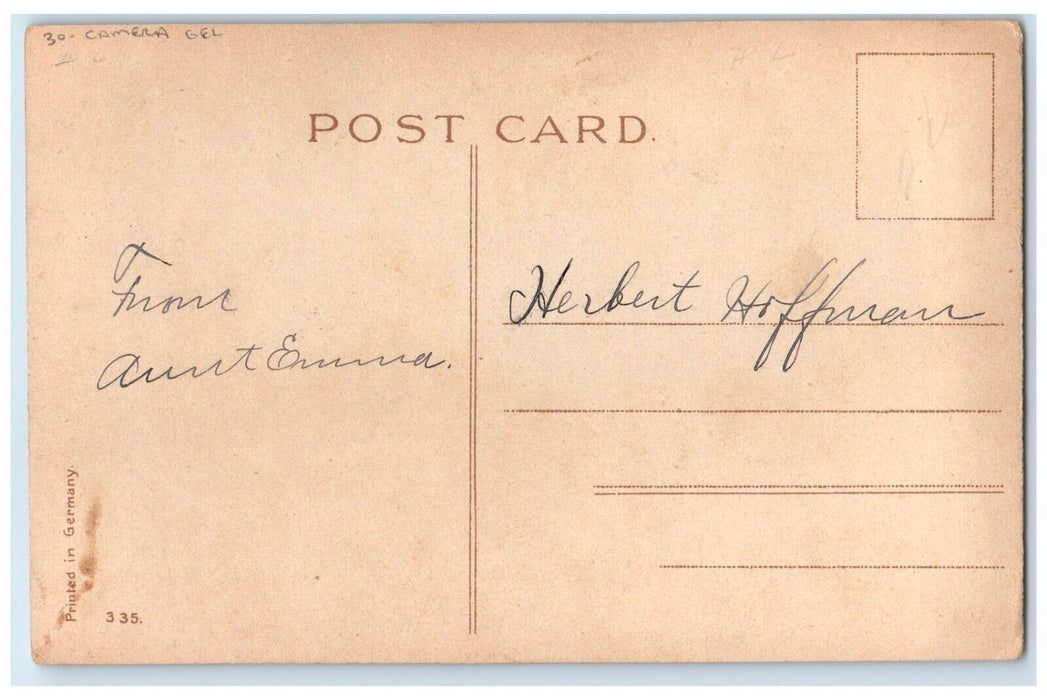 30- CAMERA GEL
POST CARD.
From
Aunt Emma.
Herbert Hoffman
Printed in Germany.
335.